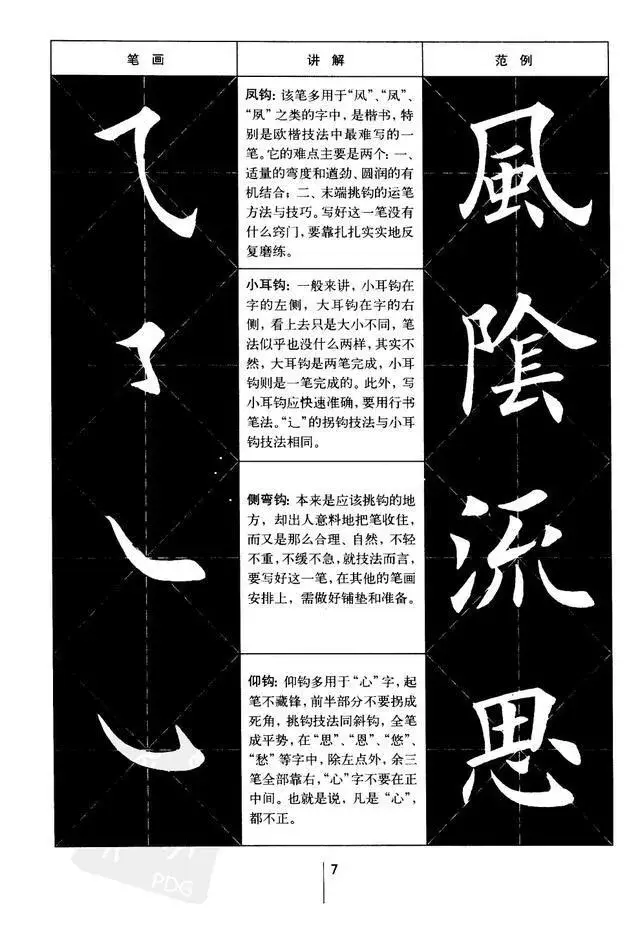 笔画 讲解 范例
凤钩：该笔多用于“风”、“凤”、
“夙”之类的字中，是楷书，特
别是欧楷技法中最难写的一
笔。它的难点主要是两个：一、
适量的弯度和遒劲、圆润的有
机结合；二、末端挑钩的运笔
方法与技巧。写好这一笔没有
什么窍门，要靠扎扎实实地反
复磨练。
風
小耳钩：一般来讲，小耳钩在
字的左侧，大耳钩在字的右
侧，看上去只是大小不同，笔
法似乎也没什么两样，其实不
然，大耳钩是两笔完成，小耳
钩则是一笔完成的。此外，写
小耳钩应快速准确，要用行书
笔法。“辶”的拐钩技法与小耳
钩技法相同。
陰
侧弯钩：本来是应该挑钩的地
方，却出人意料地把笔收住，
而又是那么合理、自然，不轻
不重，不缓不急，就技法而言，
要写好这一笔，在其他的笔画
安排上，需做好铺垫和准备。
流
仰钩：仰钩多用于“心”字，起
笔不藏锋，前半部分不要拐成
死角，挑钩技法同斜钩，全笔
成平势，在“思”、“恩”、“悠”、
“愁”等字中，除左点外，余三
笔全部靠右，“心”字不要在正
中间。也就是说，凡是“心”，
都不正。
思
PDG
7